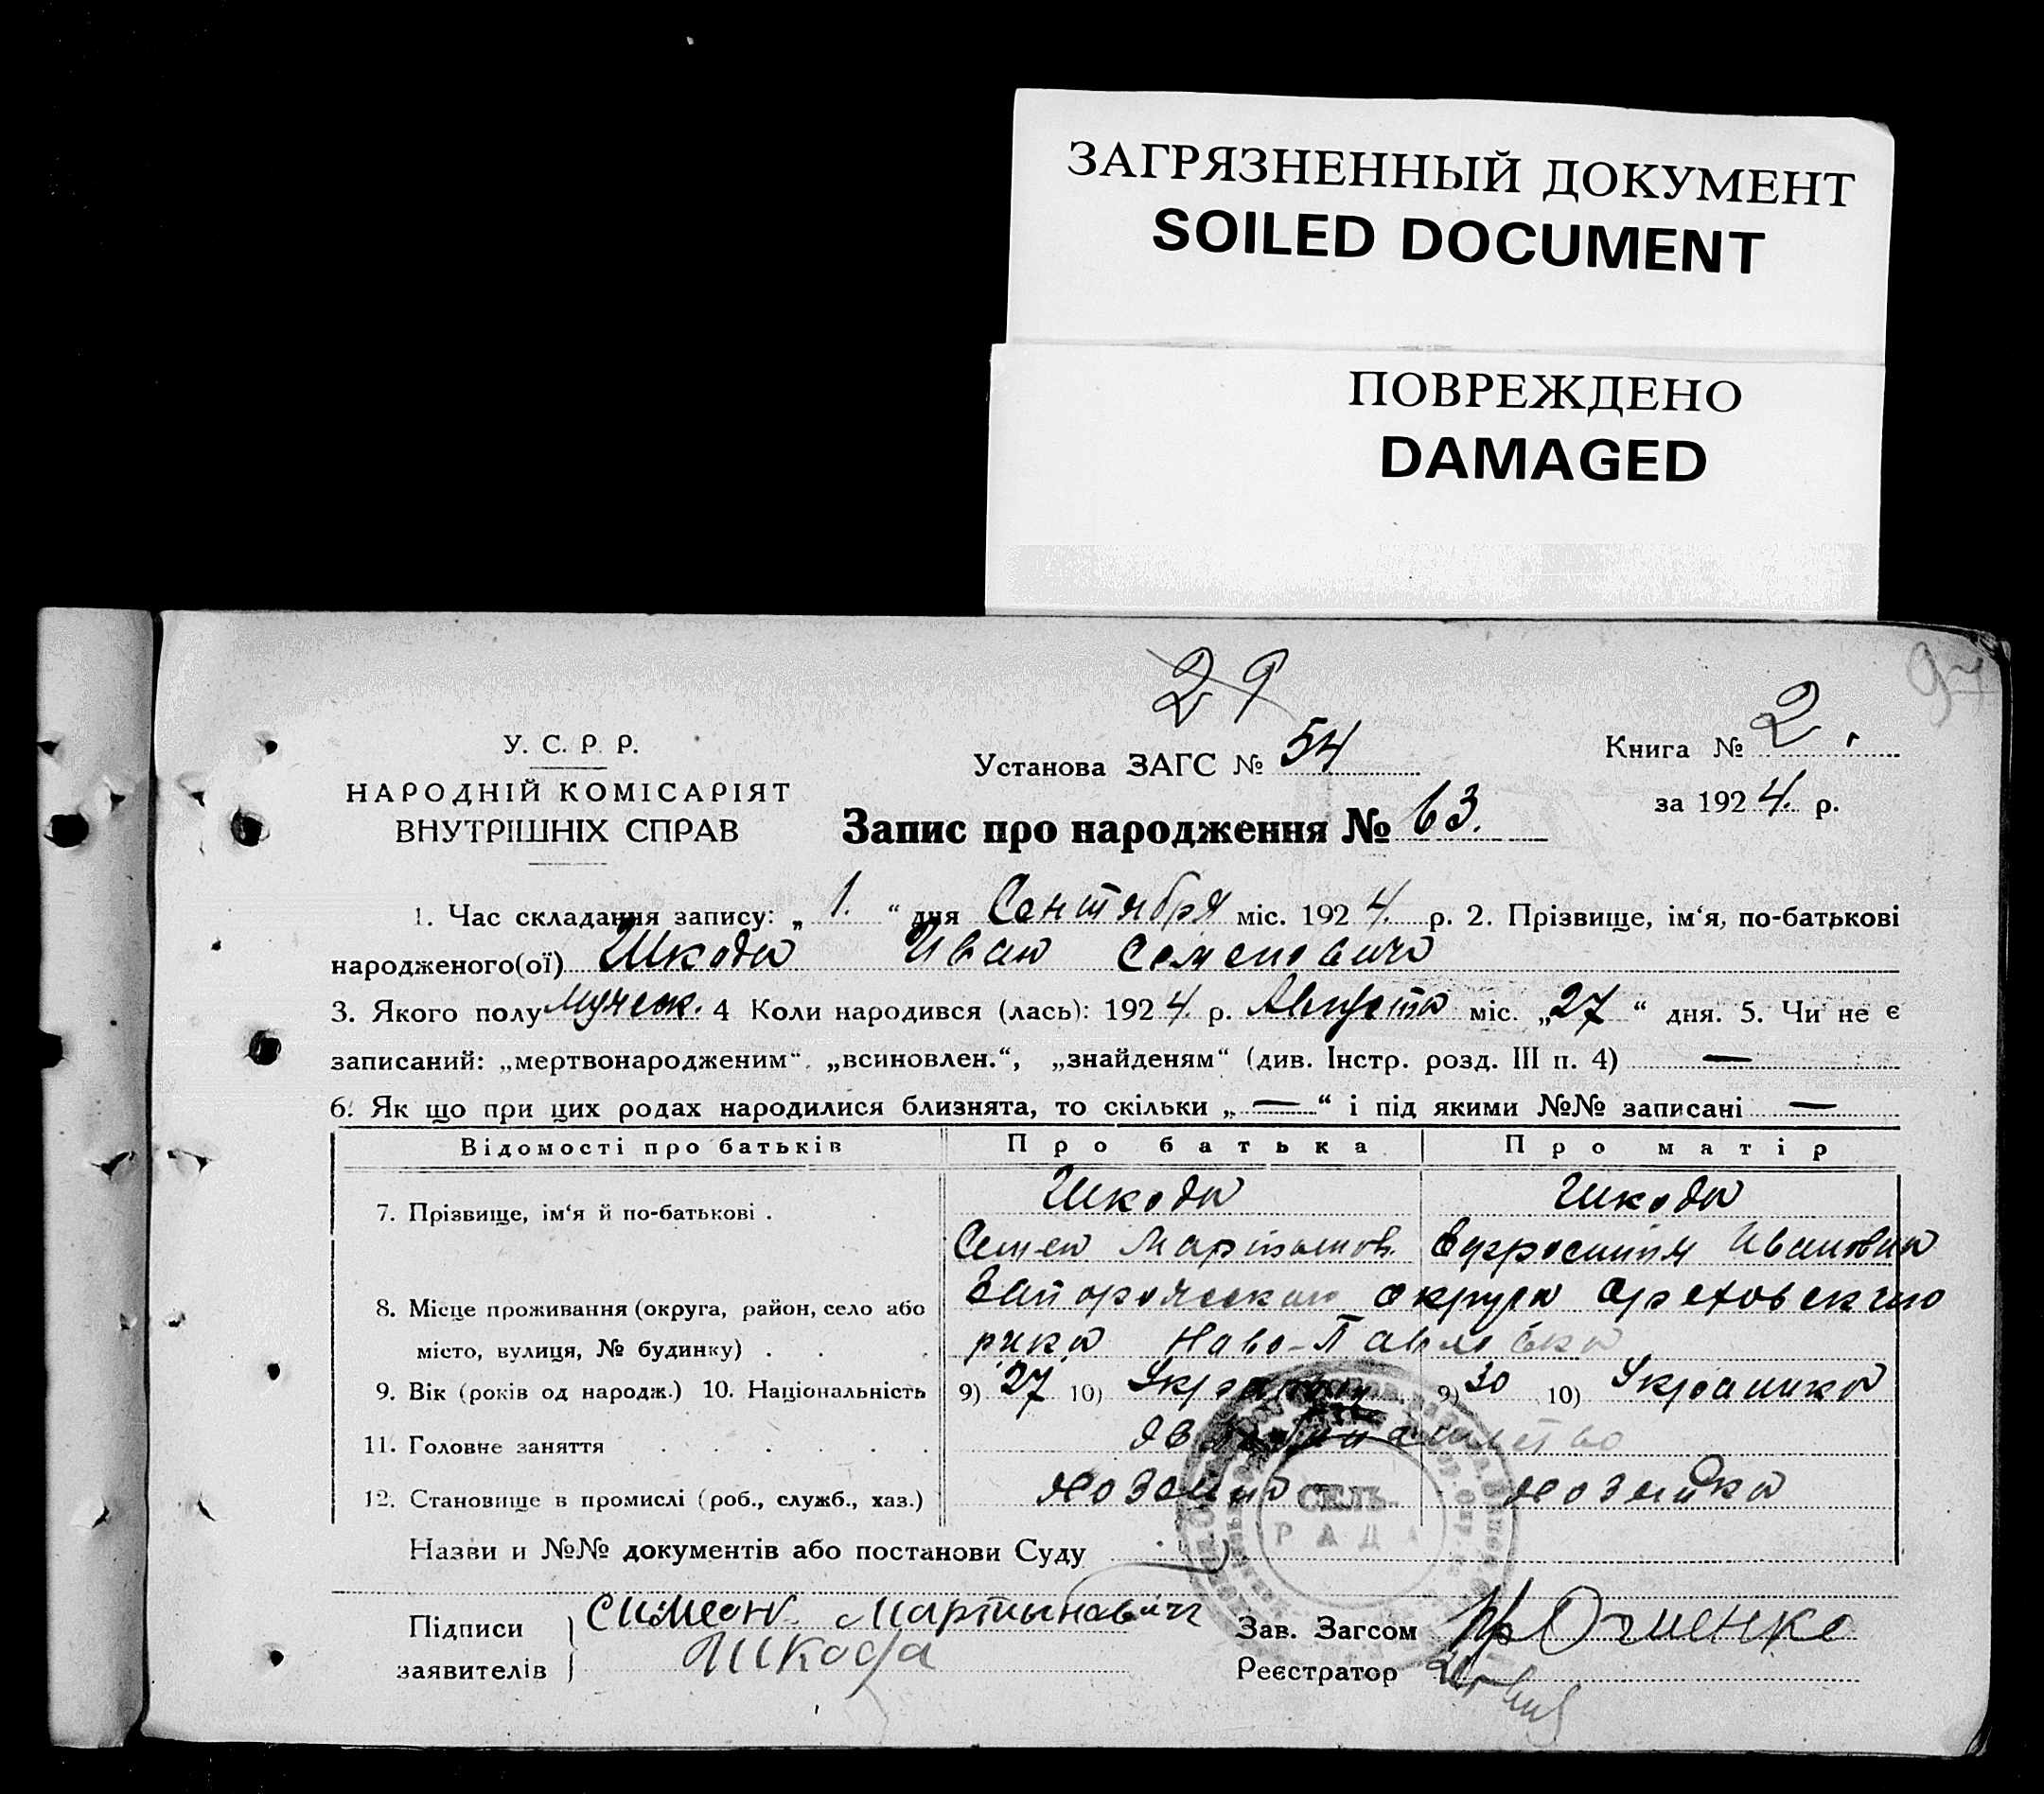 ЗАГРЯЗНЕННЫЙ ДОКУМЕНТ
SOILED DOCUMENT
ПОВРЕЖДЕНО
DAMAGED
29
97
У. С. Р. Р.
НАРОДНІЙ КОМІСАРІЯТ
ВНУТРІШНІХ СПРАВ
Установа ЗАГС № 54
Книга № 2.
за 1924. р.
Запис про народження № 63.
1. Час складання запису: „ 1. “ дня Сентября міс. 1924. р. 2. Прізвище, ім‘я, по-батькові
народженого(ої) Шкода Иван Семенович
3. Якого полу Мужеск. 4 Коли народився (лась): 1924. р. Августа міс. „27“ дня. 5. Чи не є
записаний: „мертвонародженим“, „всиновлен.“, „знайденям“ (див. Інстр. розд. III п. 4) —
6. Як що при цих родах народилися близнята, то скільки „—“ і під якими №№ записані —
Відомості про батьків Про батька Про матір
7. Прізвище, ім‘я й по-батькові . Шкода Шкода
Семен Мартынов. Ефросиния Ивановна
8. Місце проживання (округа, район, село або Запорожская округа Ореховского
місто, вулиця, № будинку) . р-на Ново-Павловка
9. Вік (років од народж.) 10. Національність 9) 27 10) Украинец 9) 30 10) Украинка
11. Головне заняття
12. Становище в промислі (роб., служб., хаз.) хозяин хозяйка
СЕЛЬ.
РАДА
Назви и №№ документів або постанови Суду
Підписи Симеон Мартынавич Зав. Загсом
заявителів Шкода Реєстратор